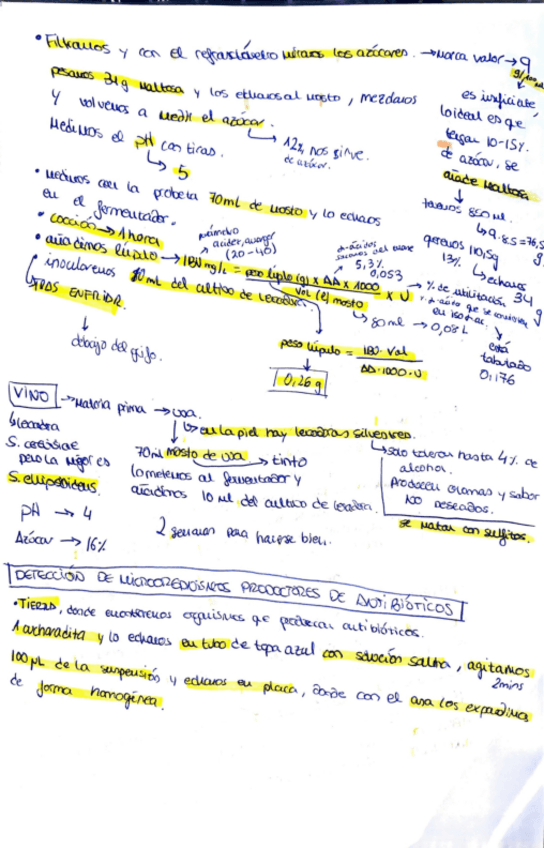 • Filtramos y con el refractómetro miramos los azúcares. → Marca valor → 9 g/100mL
pesamos 34g maltosa y los echamos al mosto, mezclamos
y volvemos a medir el azúcar.
↳ 12%, nos sirve. de azúcar.
Medimos el pH con tiras.
↳ 5
es insuficiente,
lo ideal es que
tengan 10-15%
de azúcar, se
añade Maltosa
↓
tenemos 850 ml.
↳ 9·85=76,5 g.
queremos 110,5g
13%
↳ echamos
34 g
• Medimos con la probeta 70ml de mosto y lo echamos
en el fermentador.
• cocción → 1 hora
• añadimos lúpulo → IBU mg/L = peso lúpulo (g) x AA x 1000 / vol (l) mosto x U
(20-40)
5,3%
0,053
→ % de utilización
↳ 80ml → 0,08L
está
tabulado
0,176
inoculamos 10ml del cultivo de levadura.
TRAS ENFRIAR
↓
debajo del grifo.
peso lúpulo = IBU· Vol / AA·1000·U
0,26 g
VINO → Materia prima → uva.
↳ en la piel hay levaduras silvestres.
↳ levadura
S. cerevisiae
pero la mejor es
S. ellipsoideus.
pH → 4
Azúcar → 16%
70ml mosto de uva → tinto
lo metemos al fermentador y
añadimos 10 ml del cultivo de levadura.
2 semanas para hacerse bien.
↳ solo toleran hasta 4% de
alcohol.
Producen aromas y sabor
NO deseados.
se matan con sulfitos.
DETECCIÓN DE MICROORGANISMOS PRODUCTORES DE ANTIBIÓTICOS
• Tierra, donde encontraremos organismos que producen antibióticos.
1 cucharadita y lo echamos en tubo de tapa azul con solución salina, agitamos
2mins
100µL de la suspensión y echamos en placa, donde con el asa los expandimos
de forma homogénea.